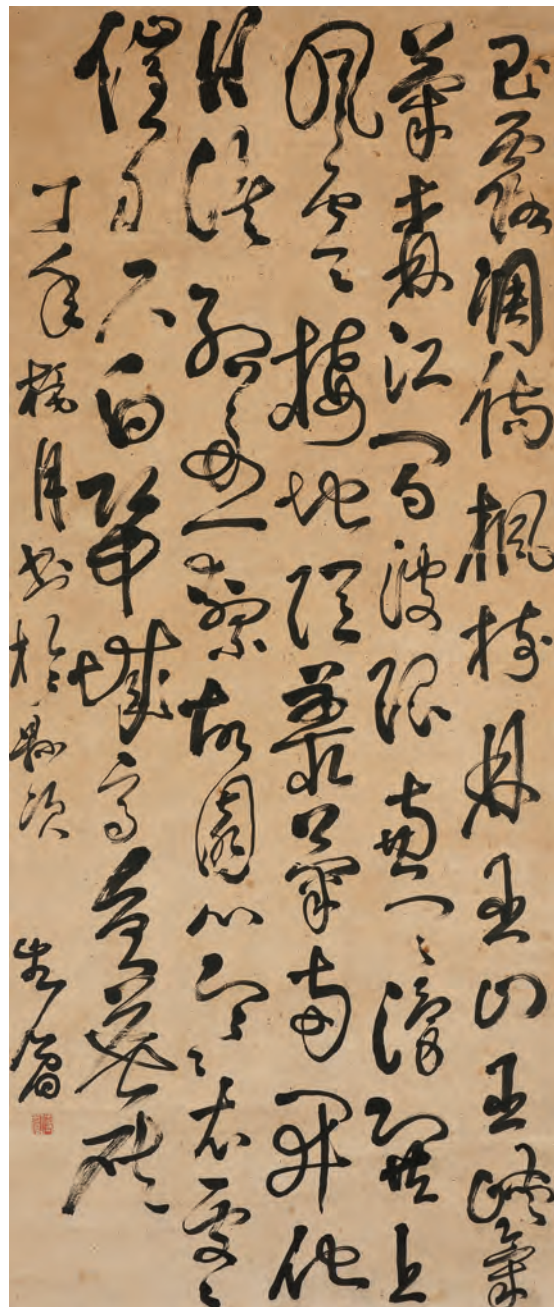 玉露凋傷楓樹林巫山巫峽氣
蕭森江間波浪兼天湧塞上
風雲接地陰叢菊兩開他
日淚孤舟一繫故園心寒衣處處
催刀尺白帝城高急暮砧
月書於